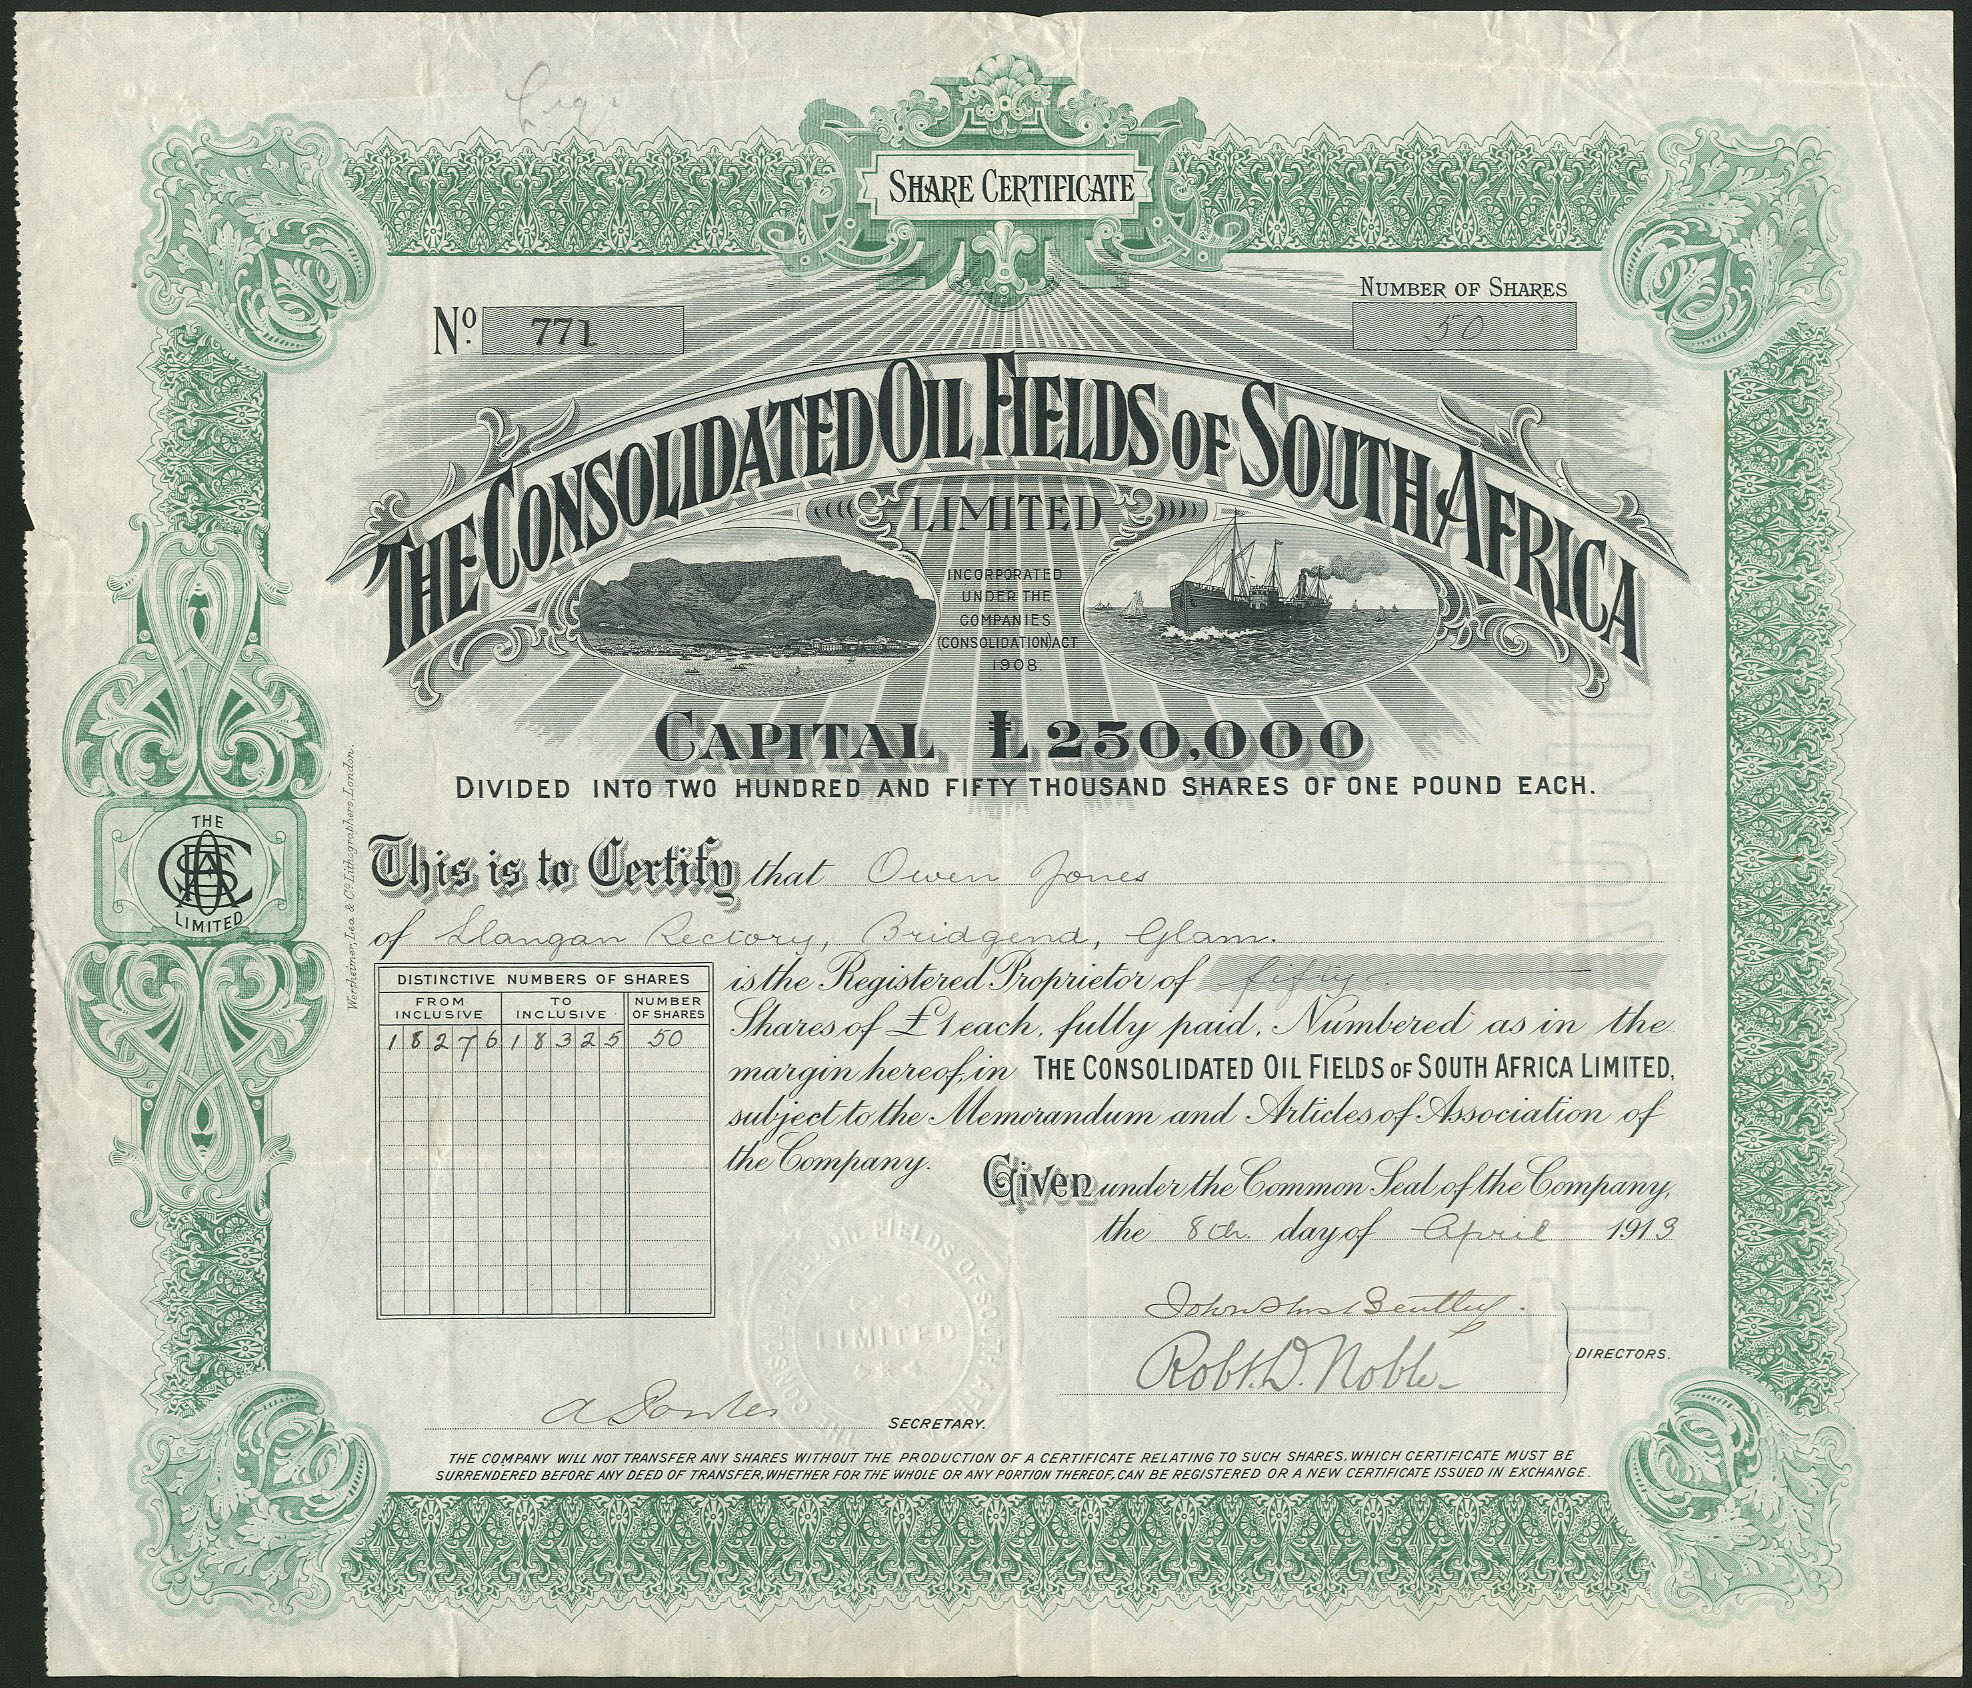 Liq.
SHARE CERTIFICATE
No. 771
NUMBER OF SHARES
50
THE CONSOLIDATED OIL FIELDS OF SOUTH AFRICA
LIMITED
INCORPORATED
UNDER THE
COMPANIES
(CONSOLIDATION) ACT
1908.
CAPITAL £250,000
DIVIDED INTO TWO HUNDRED AND FIFTY THOUSAND SHARES OF ONE POUND EACH.
This is to Certify that Owen Jones
of Llangan Rectory, Bridgend, Glam.
is the Registered Proprietor of fifty
Shares of £1 each, fully paid, Numbered as in the
margin hereof, in THE CONSOLIDATED OIL FIELDS OF SOUTH AFRICA LIMITED,
subject to the Memorandum and Articles of Association of
the Company.
DISTINCTIVE NUMBERS OF SHARES
FROM INCLUSIVE TO INCLUSIVE NUMBER OF SHARES
18276 18325 50
Given under the Common Seal of the Company,
the 8th day of April 1913
Robt. D. Noble
DIRECTORS.
SECRETARY.
THE COMPANY WILL NOT TRANSFER ANY SHARES WITHOUT THE PRODUCTION OF A CERTIFICATE RELATING TO SUCH SHARES, WHICH CERTIFICATE MUST BE
SURRENDERED BEFORE ANY DEED OF TRANSFER, WHETHER FOR THE WHOLE OR ANY PORTION THEREOF, CAN BE REGISTERED OR A NEW CERTIFICATE ISSUED IN EXCHANGE.
THE
LIMITED
Wertheimer, Lea & Co. Lithographers, London.
OIL FIELDS OF SOUTH
LIMITED